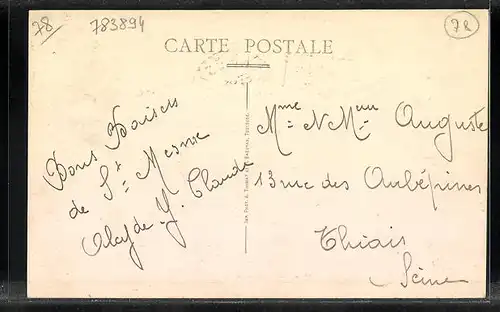 78
783894
78
CARTE POSTALE
Bons Baisers
de St Mesme
de Y. Claude
Mme Auguste
13 rue des Aubépines
Thiais
Seine